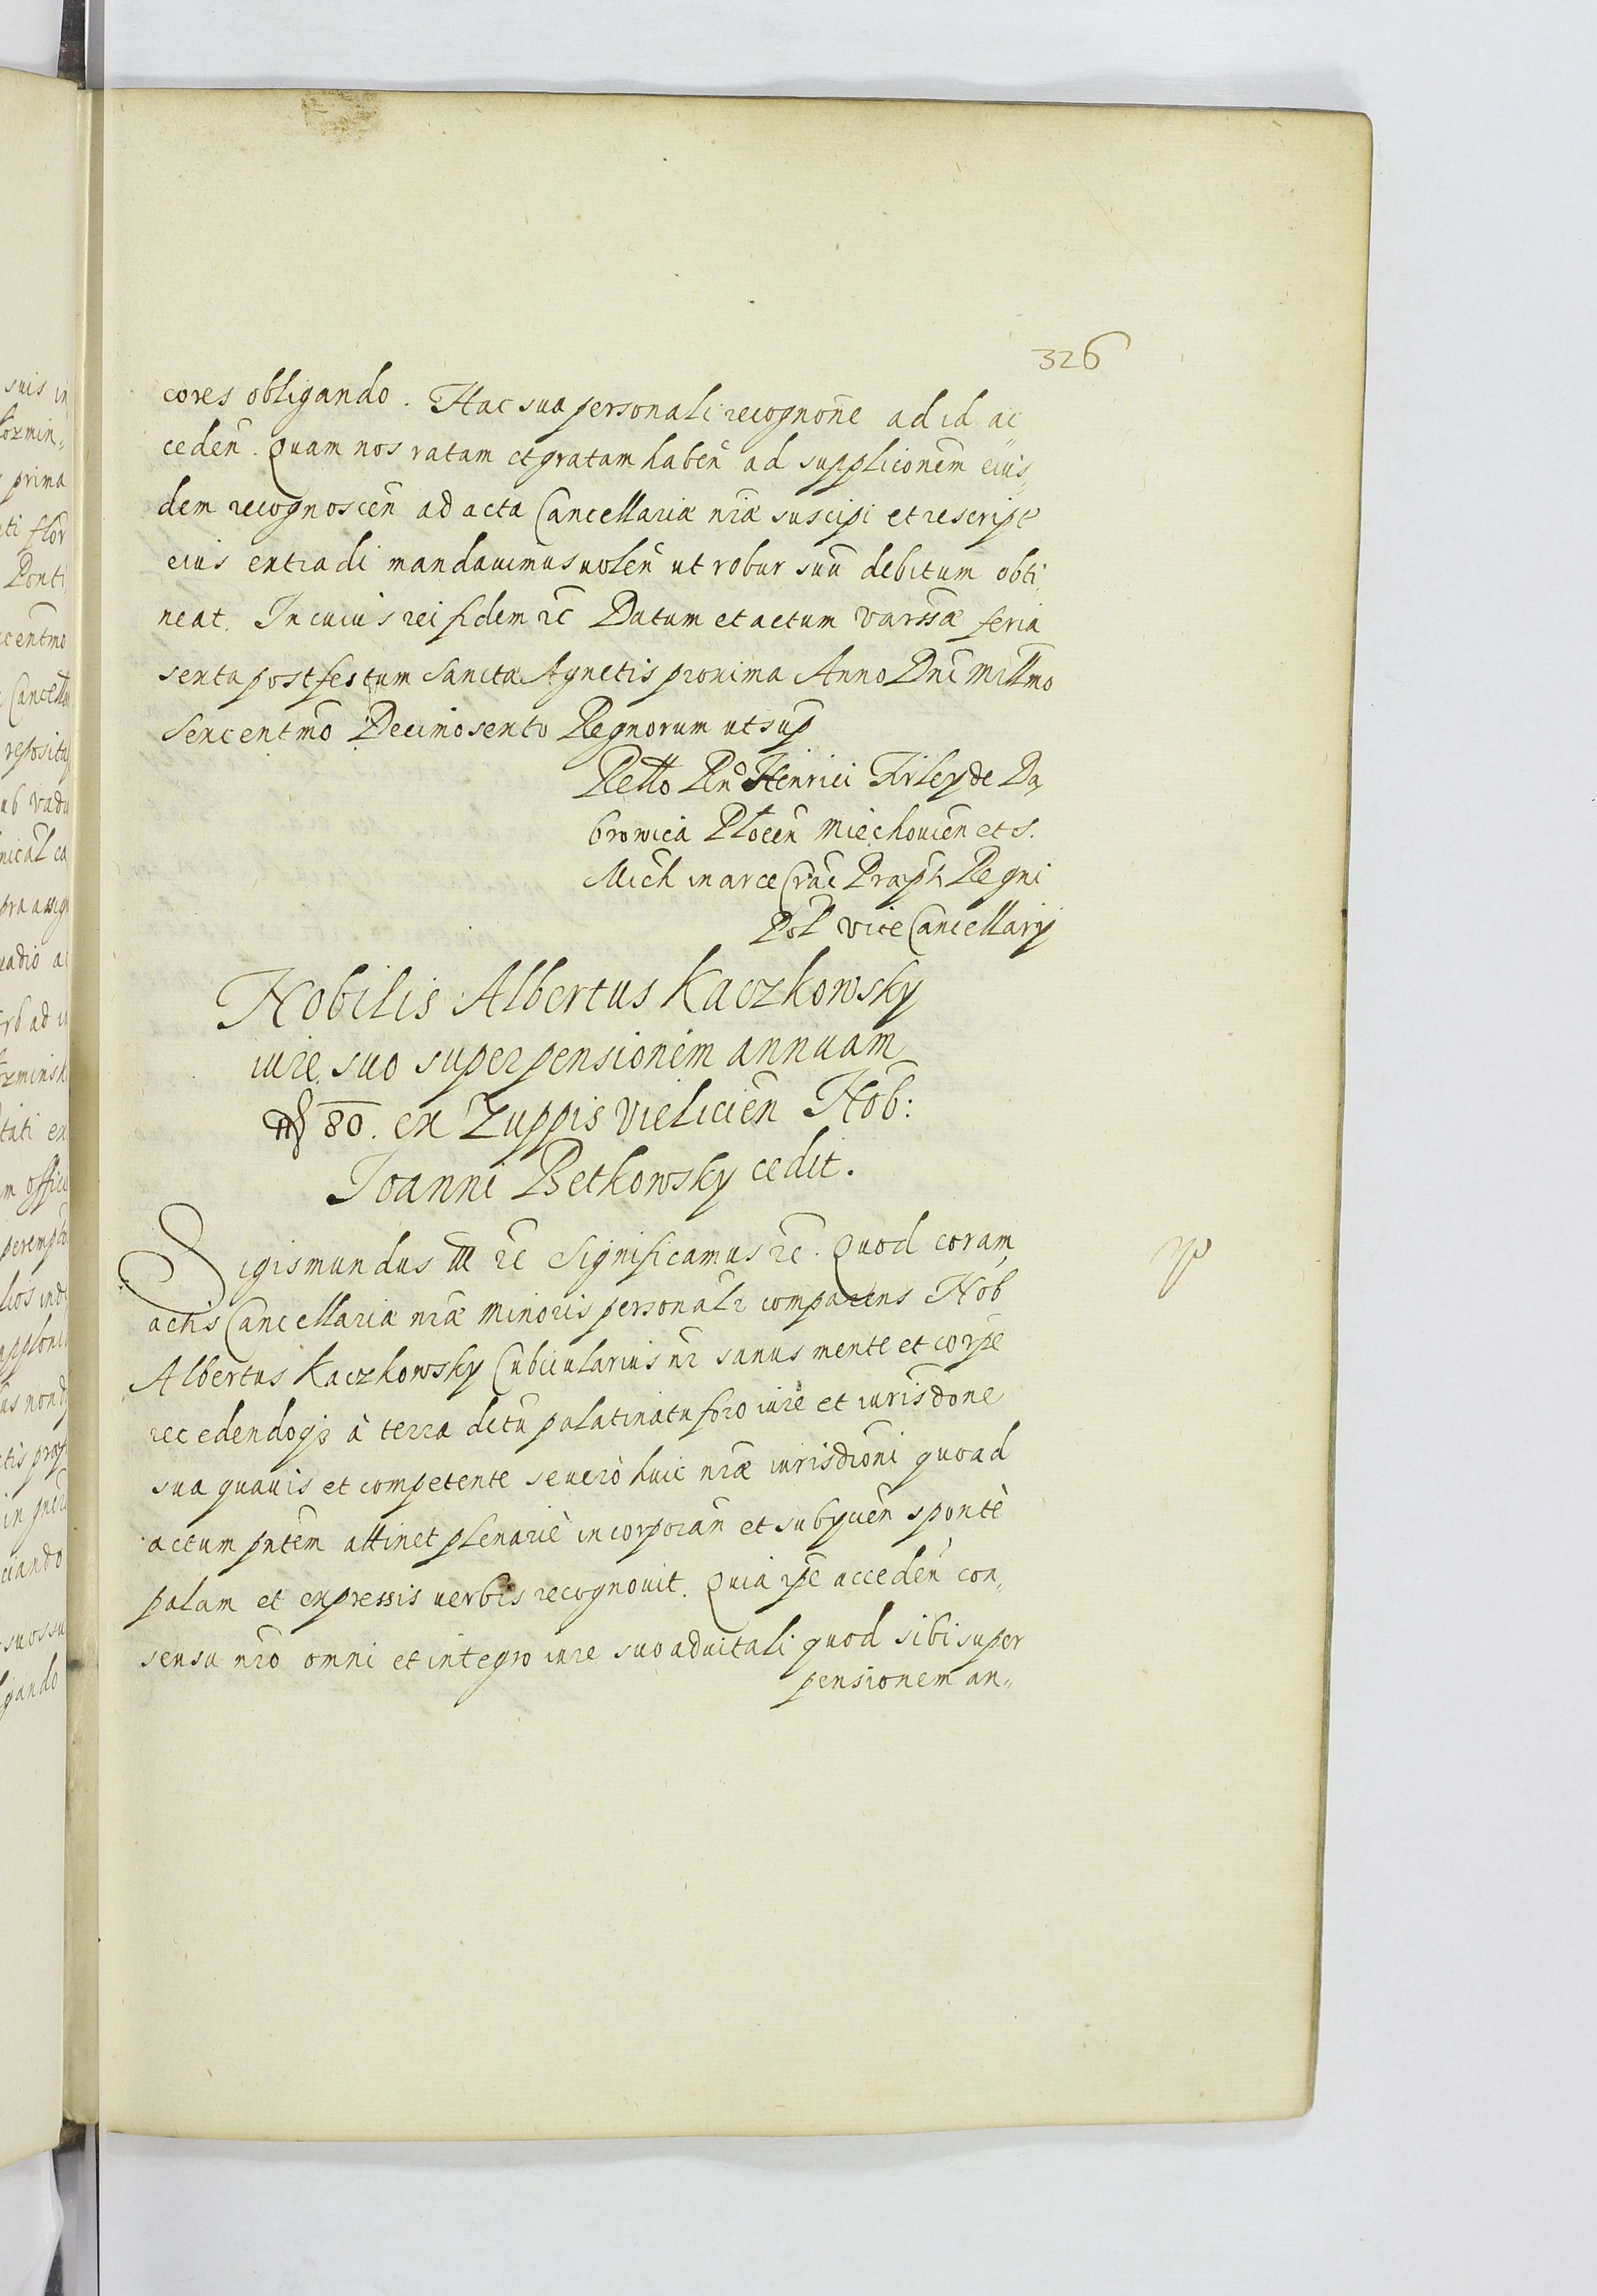 326
cores obligando. Hac sua personali recognone ad id ac
ceden̄. Quam nos ratam et gratam haben̄ ad supplicionem eius„
dem recognoscen̄ ad acta Cancellariæ nr̄æ suscipi et rescript
eius extradi mandauimus uolen̄ ut robur suū debitum obti„
neat. In cuius rei fidem ec̄ Datum et actum Varssæ feria
sexta post festum Sanctæ Agnetis proxima Anno Dn̄i Millm̄o
Sexcentm̄o Decimosexto Regnorum ut sup
Retto Rn̄d Henrici Firley de Da„
browica Plocen̄ Miechouien̄ et S.
Mich in arce Crac̄ Præpti Regni
Pol Vice Cancellarij
Nobilis Albertus Kaczkowsky
iure suo super pensionem annuam
80. ex Zuppis Vielicien̄ Nob:
Joanni Betkowsky cedit.
Sigismundus III ec̄ Significamus ec̄. Quod coram
actis Cancellariæ nr̄æ Minoris personalr comparens Nob
Albertus Kaczkowsky Cubicularius nr̄ sanus mente et corpe
recedendoqs à terra dc̄tu palatinatu foro iure et iurisdone
sua quauis et competente seuerò huic nr̄æ iurisdīoni quoad
actum pn̄tem attinet plenariè incorporan̄ et subyicien̄ spontè
palam et expressis uerbis recognouit. Quia ipe acceden̄ con„
sensu nr̄o omni et integro iure suo aduitali quod sibi super
pensionem an„